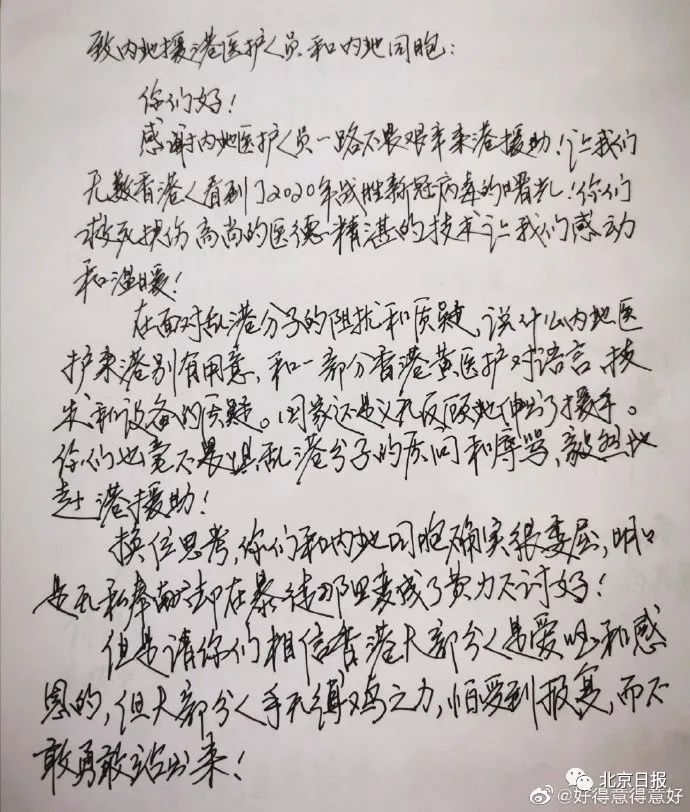 致内地援港医护人员和内地同胞：
你们好！
感谢内地医护人员一路不畏艰辛来港援助！让我们
无数香港人看到了2020年战胜新冠病毒的曙光！你们
救死扶伤高尚的医德、精湛的技术让我们感动
和温暖！
在面对乱港分子的阻扰和质疑，说什么内地医
护来港别有用意，和一部分香港黄医护对语言、技
术和设备的质疑。国家还是义无反顾地伸出了援手。
你们也毫不畏惧乱港分子的质问和辱骂，毅然地
赴港援助！
换位思考，你们和内地同胞确实很委屈，明明
是无私奉献却在暴徒那里变成了费力不讨好！
但是请你们相信香港大部分人是爱国和感
恩的，但大部分人手无缚鸡之力，怕受到报复，而不
敢勇敢站出来！
北京日报
@好得意得意好